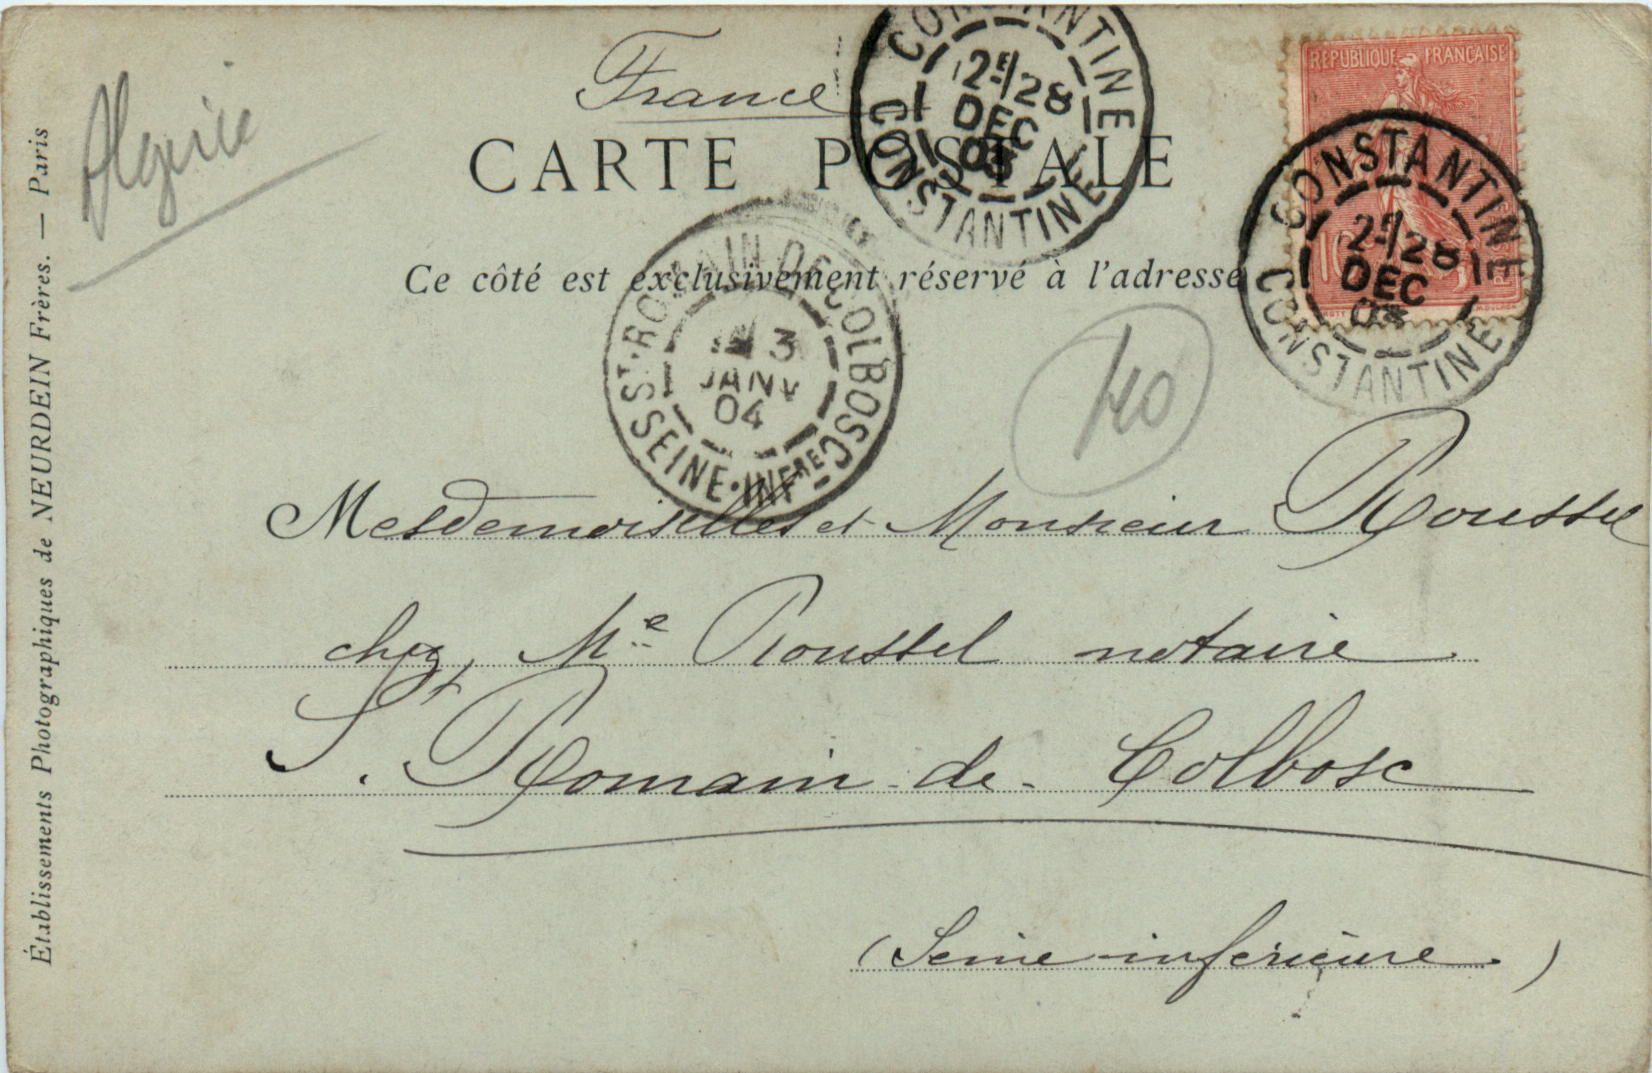 Algérie
France
CARTE POSTALE
Ce côté est exclusivement réservé à l'adresse
RÉPUBLIQUE FRANÇAISE
10
CONSTANTINE
2E/28
DEC
03
CONSTANTINE
CONSTANTINE
2E/28
DEC
03
CONSTANTINE
ST ROMAIN DE COLBOSC
3
JANV
04
SEINE-INFRE
40
Mesdemoiselles et Monsieur Roussel
chez Me Roussel notaire
St. Romain-de-Colbosc
(Seine-inférieure.)
Établissements Photographiques de NEURDEIN Frères. — Paris